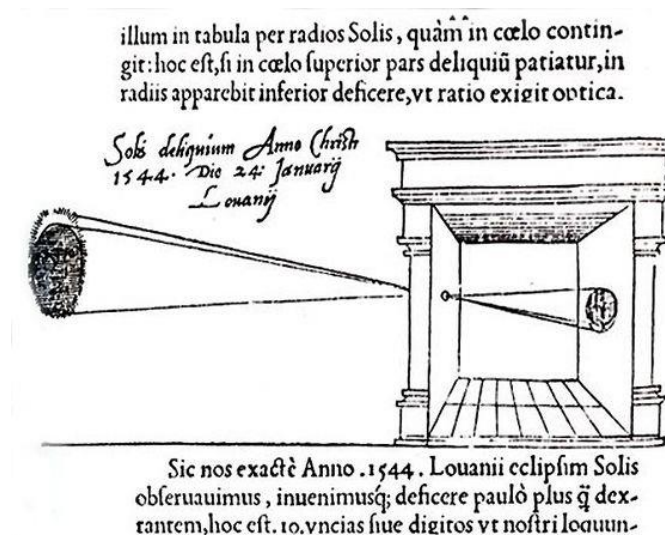 illum in tabula per radios Solis, quàm in cœlo contin-
git: hoc eſt, ſi in cœlo ſuperior pars deliquiū patiatur, in
radiis apparebit inferior deficere, vt ratio exigit optica.
Solis deliquium Anno Christi
1544. Die 24. Januarij
Louanij
Sic nos exactè Anno .1544. Louanii eclipſim Solis
obſeruauimus, inuenimusq́; deficere paulò plus q̃ dex-
tantem, hoc eſt. 10. vncias ſiue digitos vt noſtri loquun-